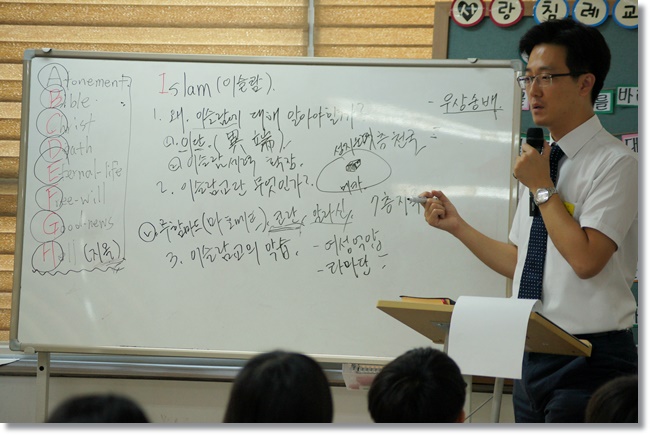 사랑침례교
를 바
Atonement
Bible
Christ
Death
Eternal-life
Free-will
Good-news
Hell (지옥)
Islam (이슬람)
1. 왜, 이슬람에 대해 알아야할까?
① 이단. (異端).
② 이슬람세력 확장
2. 이슬람교란 무엇인가?
무함마드(마호메트), 코란,
3. 이슬람교의 악습.
- 여성억압
- 라마단
- 우상숭배
7층천국
메카
7층지옥